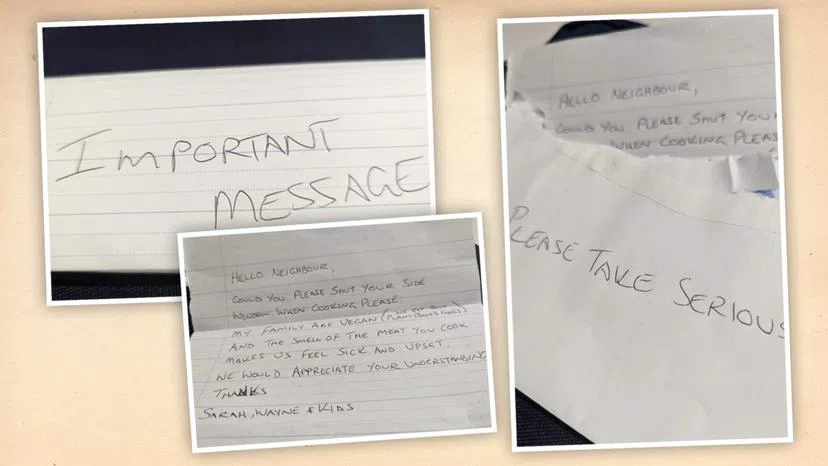 IMPORTANT
MESSAGE
HELLO NEIGHBOUR,
COULD YOU PLEASE SHUT YOUR SIDE
WINDOW WHEN COOKING PLEASE.
MY FAMILY ARE VEGAN (WE EAT ONLY PLANT BASED FOODS)
AND THE SMELL OF THE MEAT YOU COOK
MAKES US FEEL SICK AND UPSET.
WE WOULD APPRECIATE YOUR UNDERSTANDING
THANKS
SARAH, WAYNE & KIDS
HELLO NEIGHBOUR,
COULD YOU PLEASE SHUT YOU
WHEN COOKING PLEAS
PLEASE TAKE SERIOUS